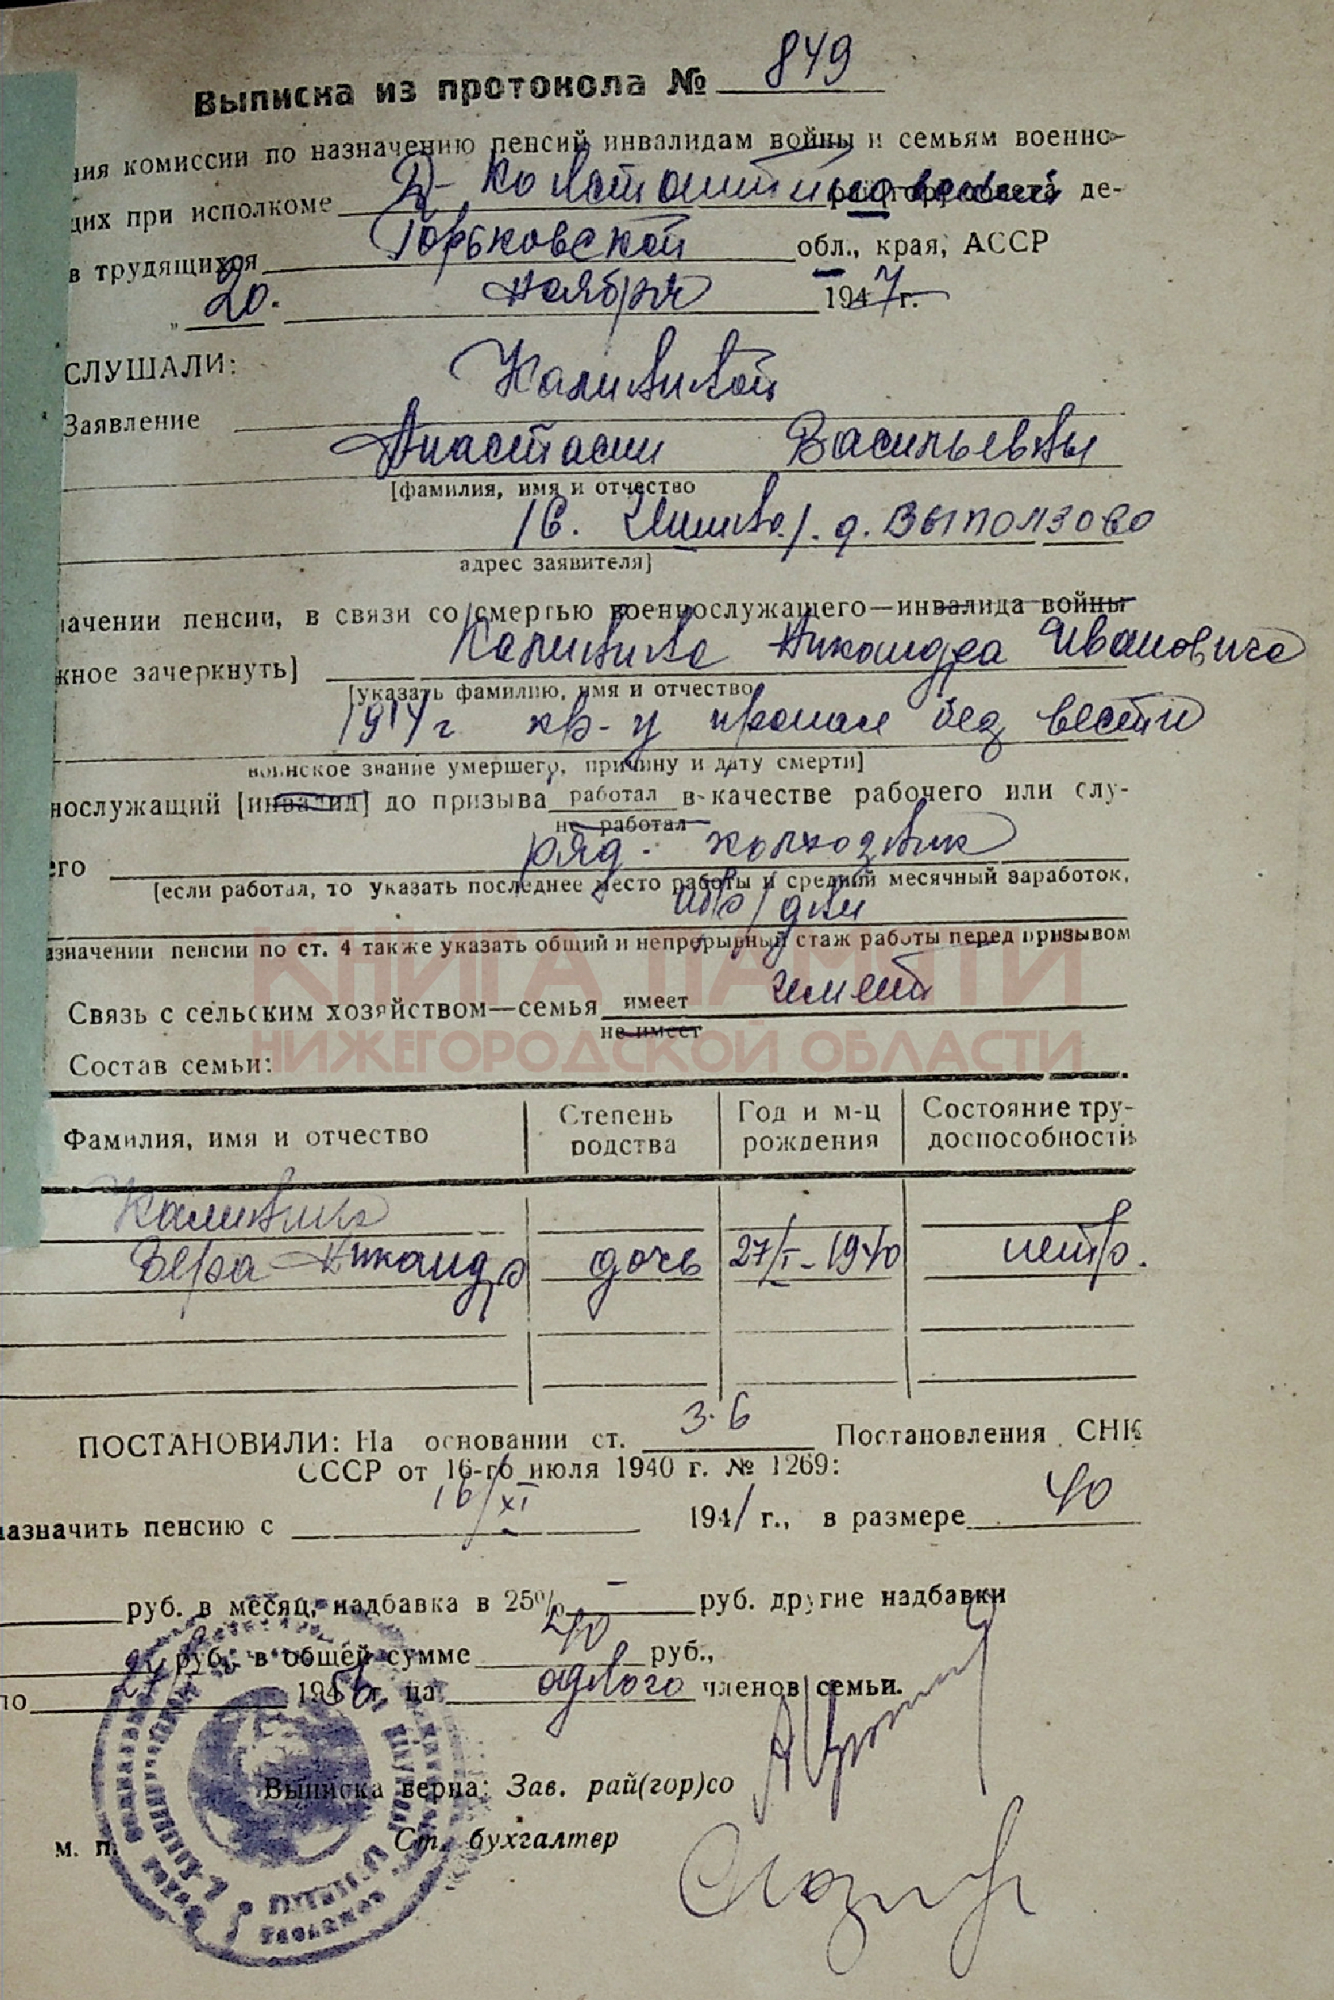 Выписка из протокола № 849
ния комиссии по назначению пенсий инвалидам войны и семьям военно-
щих при исполкоме Д-Константиновский рай(гор)совета де-
в трудящихся Горьковской обл., края, АССР
„ 20. ноября 1947 г.
СЛУШАЛИ:
Заявление Калининой
Анастасии Васильевны
[фамилия, имя и отчество
/С. д. Выползово
адрес заявителя]
начении пенсии, в связи со смертью военнослужащего—инвалида войны
жное зачеркнуть] Калинина Никандра Ивановича
[указать фамилию, имя и отчество
1914 г кр-ц пропал без вести
воинское звание умершего, причину и дату смерти]
нослужащий [инвалид] до призыва работал в качестве рабочего или слу-
не работал
его ряд. колхозник
[если работал, то указать последнее место работы и средний месячный заработок,
дни
азначении пенсии по ст. 4 также указать общий и непрерывный стаж работы перед призывом
КНИГА ПАМЯТИ
Связь с сельским хозяйством—семья имеет имеет
не имеет
НИЖЕГОРОДСКОЙ ОБЛАСТИ
Состав семьи:
Фамилия, имя и отчество Степень родства Год и м-ц рождения Состояние тру-доспособности
Калинина
Вера Никандр дочь 27/I-1940 нетр.
ПОСТАНОВИЛИ: На основании ст. 3-6 Постановления СНК
СССР от 16-го июля 1940 г. № 1269:
назначить пенсию с 16/XI 1941 г., в размере 40
руб. в месяц, надбавка в 25% – руб. другие надбавки
руб. в общей сумме 40 руб.,
по 27/I 1956 г. на одного членов семьи.
Выписка верна: Зав. рай(гор)со
м. п. Ст. бухгалтер